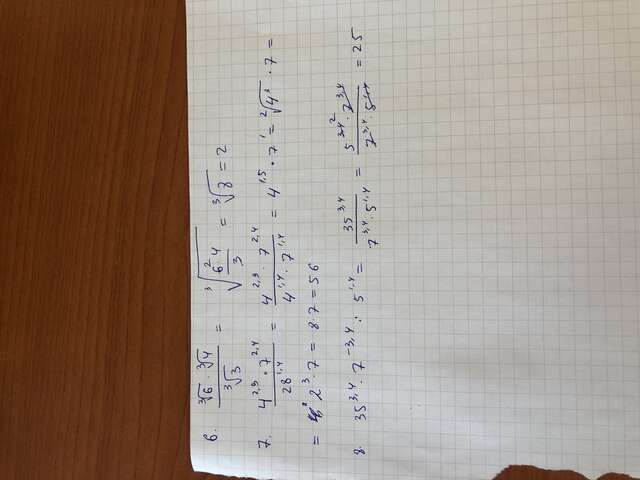 6. ∛6 · ∛4 / ∛3 = ∛(6² 4 / 3) = ∛8 = 2
7. 4^2,9 · 7^2,4 / 28^1,4 = 4^2,9 · 7^2,4 / 4^1,4 · 7^1,4 = 4^1,5 · 7^1 = ²√4³ · 7 =
= 2³ · 7 = 8 · 7 = 56
8. 35^3,4 · 7^-3,4 : 5^1,4 = 35^3,4 / 7^3,4 · 5^1,4 = 5^3,4 2 · 7^3,4 / 7^3,4 · 5^1,4 = 25